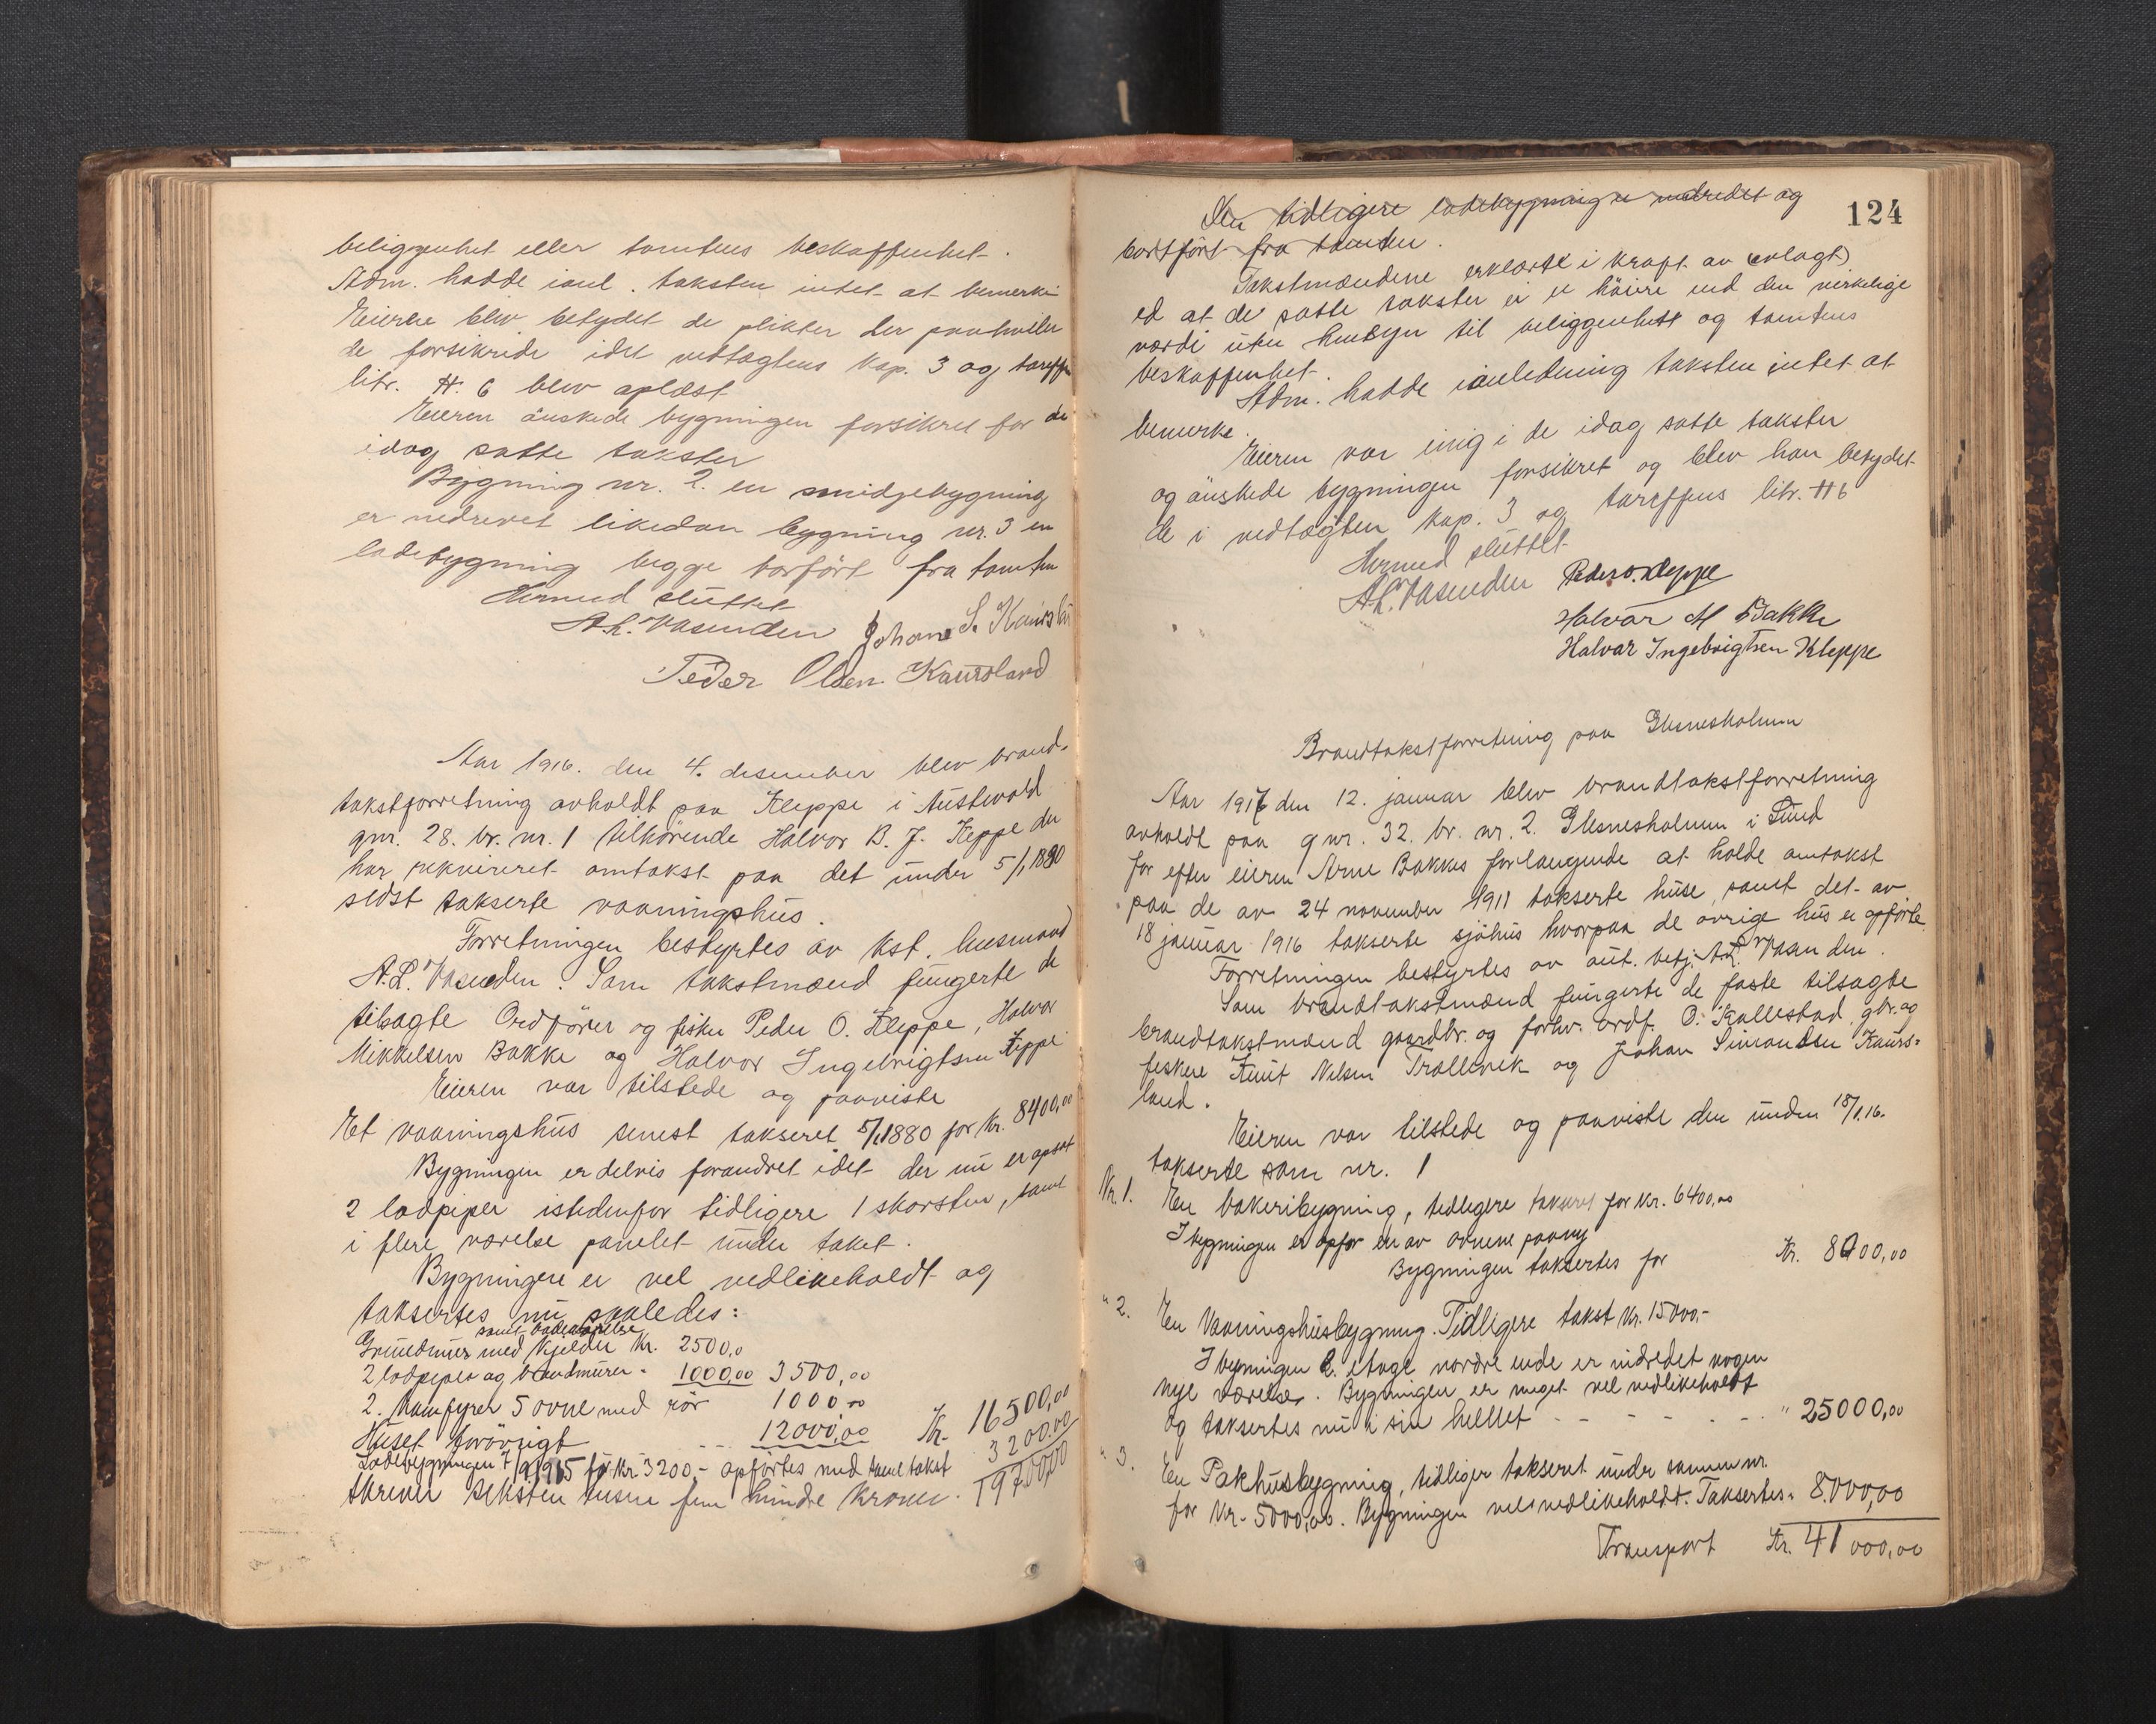 beliggenhet eller tomtens beskaffenhet.
Adm. hadde ianl. taksten intet at bemerke
Eieren blev betydet de plikter der paahviler
de forsikrede idet vedtægtens kap. 3 og tariffen
litr. H. 6 blev oplæst
Eieren ønskede bygningen forsikret for de
idag satte takster
Bygning nr. 2. en smidjebygning
er nedrevet likedan bygning nr. 3 en
ladebygning begge borført fra tomten
Hermed sluttet
A.L. Vasenden Johan S. Kaursland
Peder Olsen Kaursland
Aar 1916. den 4. desember blev brand-
takstforretning avholdt paa Kleppe i Austevold
gnr. 28. br. nr. 1 tilhørende Halvor B. J. Kleppe der
har rekvireret omtakst paa det under 5/1 1880
sidst takserte vaaningshus.
Forretningen bestyrtes av kst. lensmand
A.L. Vasenden. Som takstmænd fungerte de
tilsagte Ordfører og fisker Peder O. Kleppe, Halvor
Mikkelsen Bakke og Halvor Ingebrigtsen Kleppe
Eieren var tilstede og paaviste
Et vaaningshus senest takseret 5/1 1880 for Kr. 8400,00
Bygningen er delvis forandret idet der nu er opsat
2 lodpiper istedenfor tidligere 1 skorsten, samt
i flere værelse panelet under taket.
Bygningene er vel vedlikeholdt og
taksertes nu saaledes:
samt
Grundmur med kjelder Kr. 2500,0
2 lodpiper og brandmurer " 1000,00 3500,00
2. Komfyrer 5 ovne med rør 1000 00
Huset forøvrigt -- 12000,00 Kr. 16500,00
Ladebygningen 7/9 1915 for Kr. 3200,- opførtes med samme takst 3200.00
skriver seksten tusen fem hundre kroner. 19700,00
124
Den tidligere ladebygning er nedredet og
bortført fra tomten.
Takstmændene erklærte i kraft av (avlagt)
ed at de satte takster ei er høiere end den virkelige
værdi uten hensyn til beliggenhet og tomtens
beskaffenhet.
Adm. hadde ianledning taksten intet at
bemerke.
Eieren var enig i de idag satte takster
og ønskede bygningen forsikret og blev han betydet
de i vedtægten kap. 3 og tariffens litr. H 6
Hermed sluttet
A.L. Vasenden Peder O. Kleppe
Halvor M Bakke
Halvar Ingebrigtsen Kleppe
Brandtakstforretning paa Glesnesholmen
Aar 1917 den 12. januar blev brandtakstforretning
avholdt paa gnr. 32. br. nr. 2. Glesnesholmen i Sund
for efter eieren Arne Bakkes forlangende at holde omtakst
paa de av 24 november 1911 takserte huse, samt det av
18 januar 1916 takserte sjøhus hvorpaa de øvrige hus er opførte.
Forretningen bestyrtes av aut. betj. A.L. Vasenden.
Som brandtakstmænd fungerte de faste tilsagte
brandtakstmænd gaardbr. og forhv. ordf. O. Kallestad gbr. og
fiskere Knut Nilsen Trollevik og Johan Simonsen Kaurs-
land.
Eieren var tilstede og paaviste den under 18/1.16.
takserte som nr. 1
Nr. 1. En bakeribygning, tidligere takseret for Kr. 6400,00
I bygningen er opfør en av ovnene paany
Bygningen taksertes for Kr. 8000,00
" 2. En Vaaningshusbygning. Tidligere takst Kr. 15000.-
I bygningen 2. etage nordre ende er indredet nogen
nye værelse. Bygningen er meget vel vedlikeholdt
og taksertes nu i sin helhet - - - - - " 25000,00
" 3. En Pakhusbygning, tidliger takseret under samme nr.
for Kr. 5000,00. Bygningen vel vedlikeholdt. Taksertes " 8.000,00
Transport Kr. 41 000,00